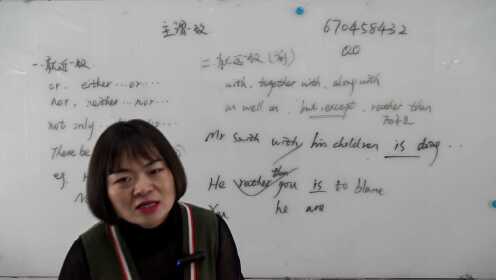 主谓一致
670458432
QQ
一.就近一致
or, either...or...
nor, neither...nor...
not only
There be
eg. H
N
二.就远一致(前)
with, together with, along with
as well as, but, except, rather than
而不是
Mr Smith with his children is doing ...
than
He rather you is to blame
You he are